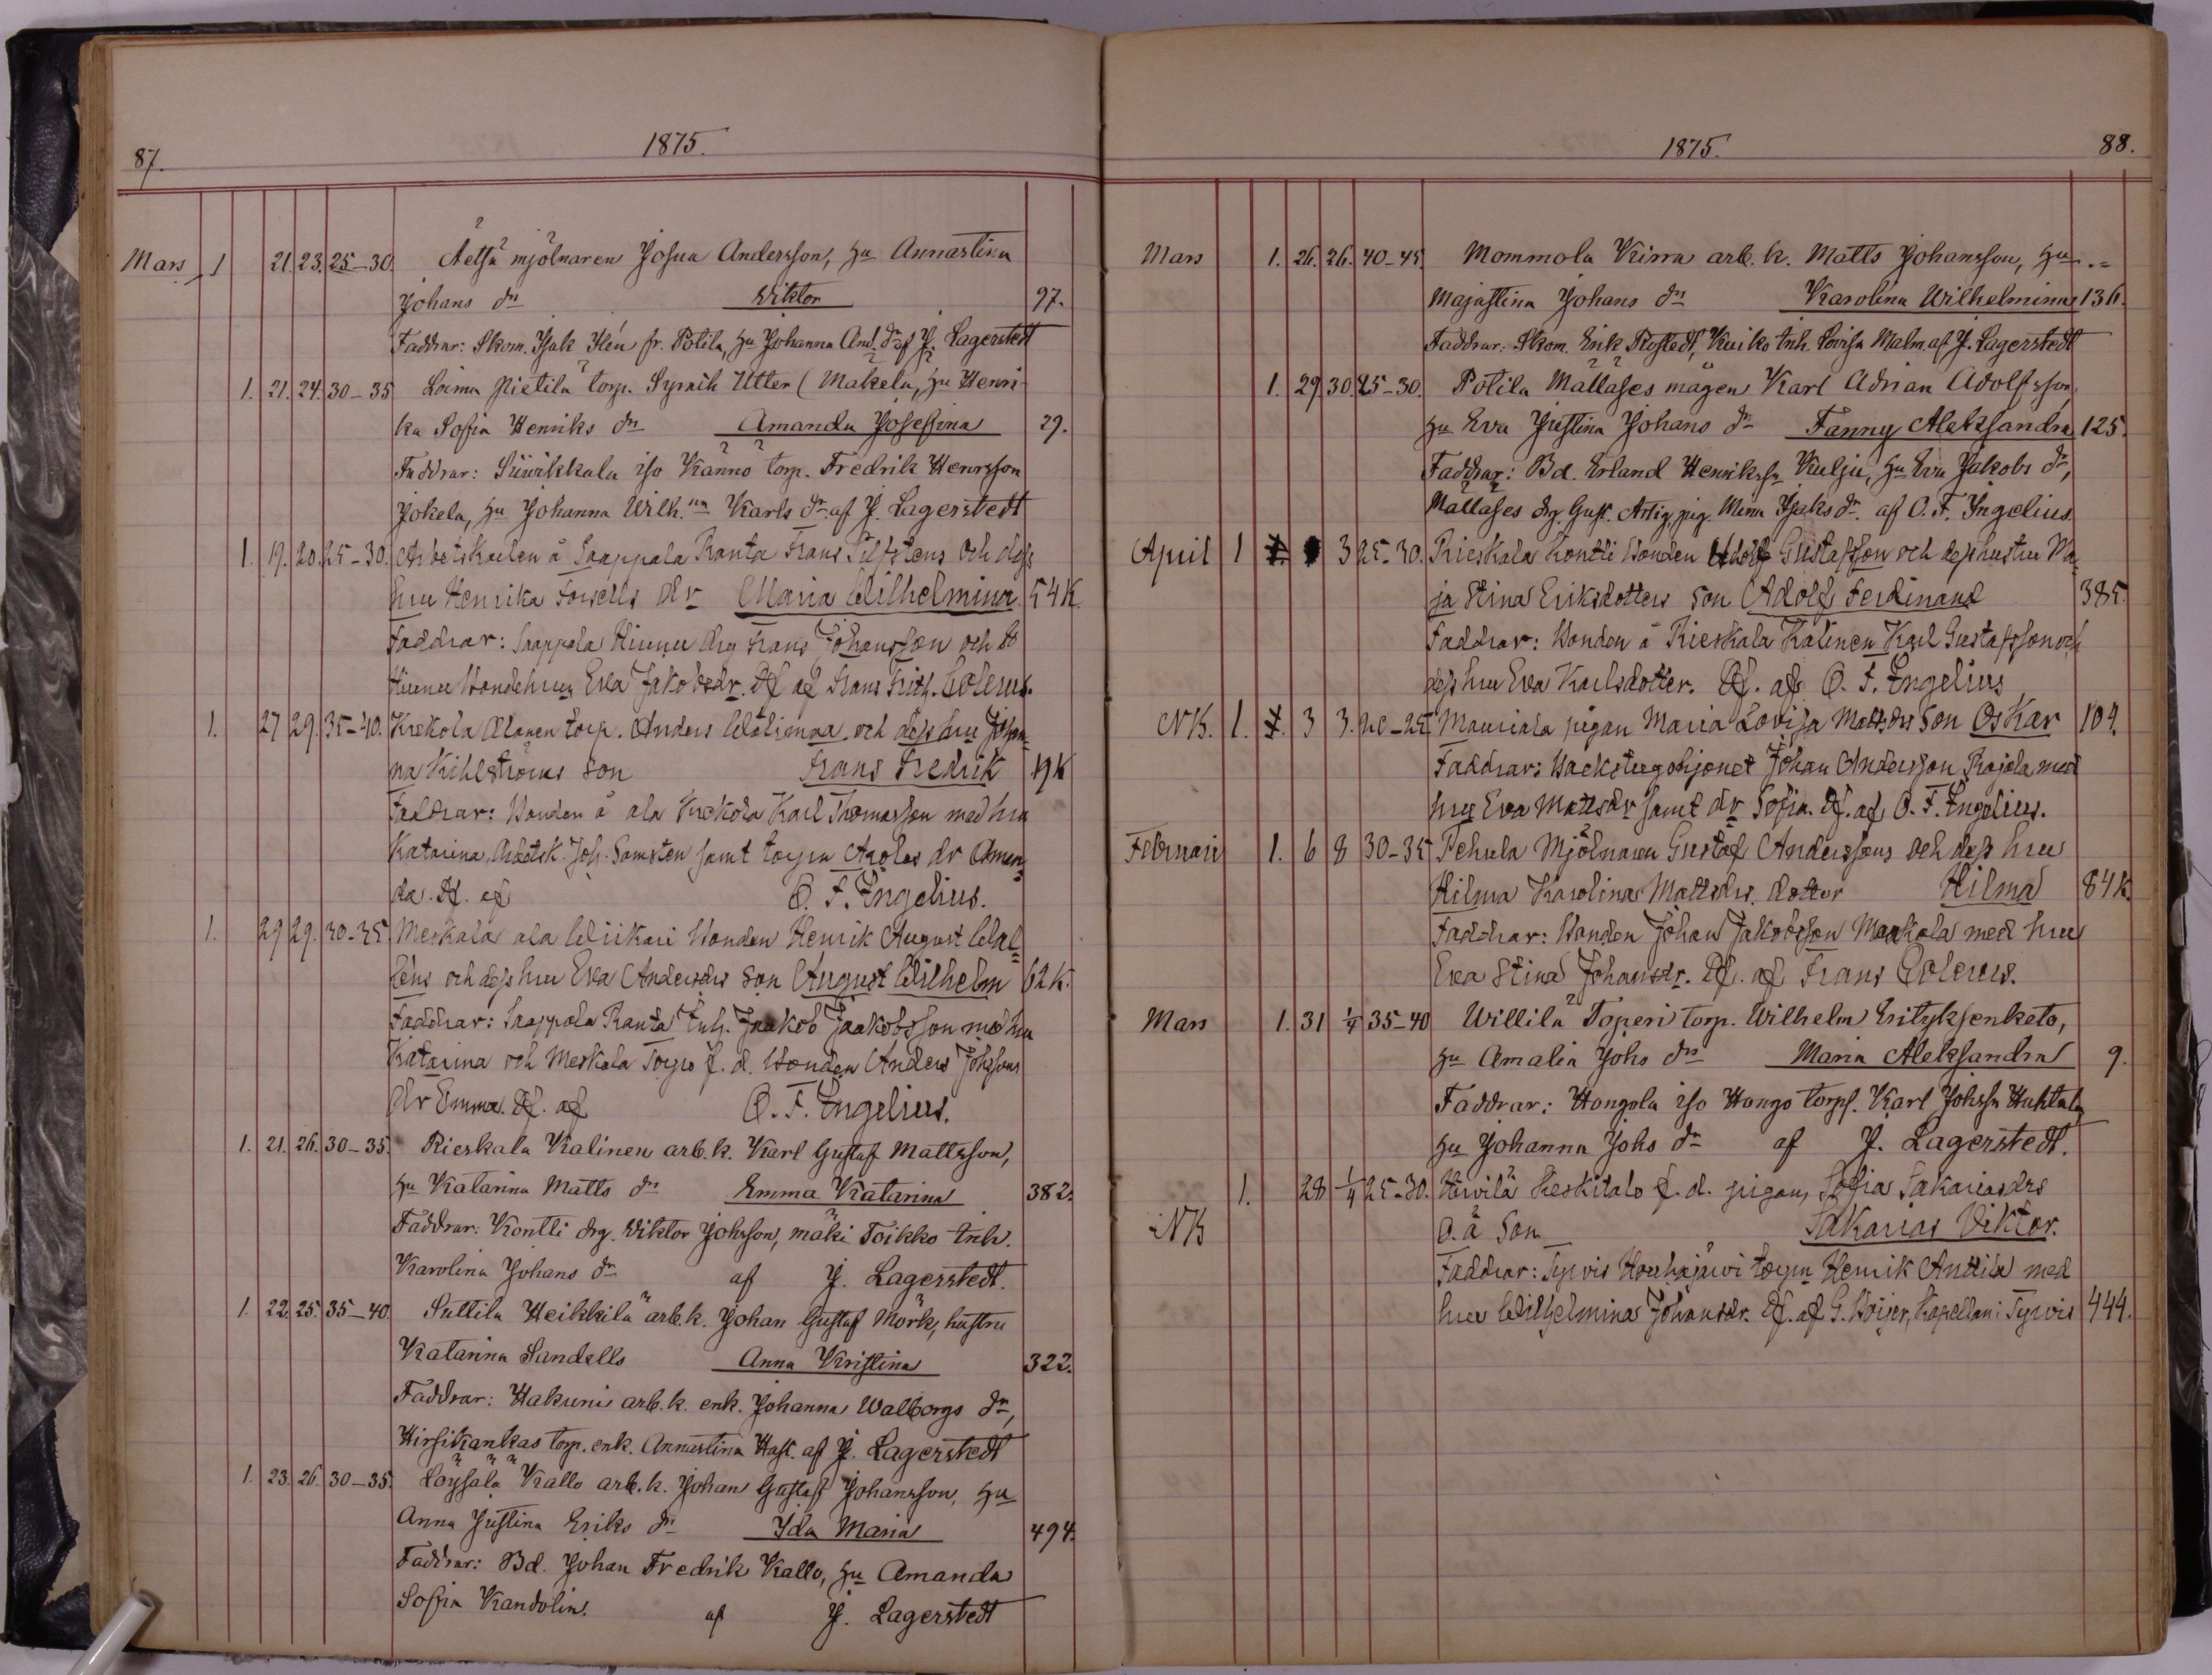 87.
1875.
Mars 1 21. 23. 25-30. Äetsä mjölnaren Josua Andersson, hu Annastina
Johans dr Viktor 97.
Faddrar: Skom. Isak Ilén fr. Potila, hu Johanna And. dr af J. Lagerstedt
1. 21. 24. 30-35 Loima Pietilä torp. Utter (Makela, hu Henri-
ka Sofia Henriks dr Amanda Josefina 29.
Faddrar: Suivikkala iso Kanno torp. Fredrik Henrsson
Jokela, hu Johanna Wilh.na Karls dr. af J. Lagerstedt
1. 19. 20. 25-30. Arbetskarlen å Saappala Ranta Frans och dess
hru Henrika dr Maria Wilhelmina 54 K.
Faddrar: Saappala Hiunu drg Frans Johansson och
Hiunu Bondehrun Eva Jakobsdr. Df af Frans Frith. Polenus.
1. 27 29. 35-40. Krekola Alanen torp. Anders och dess hru Johan-
na Kihlströms son Frans Fredrik 19 K
Faddrar: Bonden å ala Krekola Karl Thomasson med hru
Katarina, Arbetsk. Joh. Samsten samt torpn dr Aman-
da. Df. af O. F. Ingelius.
1. 29 29. 30-35 Meskala ala Wiikari Bonden Henrik August Wal-
léns och dess hru Eva Andersdrs son August Wilhelm 62 K.
Faddrar: Saappala Ranta Inh. Jaakob Jaakobsson med hru
Katarina och Meskala f. d. Bonden Anders Johssons
dr Emma. Df. af O. F. Ingelius.
1. 21. 26. 30-35. Rieskala Kalinen arb. k. Karl Gustaf Mattsson,
hu Katarina Matts dr Emma Katarina 382.
Faddrar: Kontti drg. Viktor Johsson, mäki Toikko inh.
Karolina Johans dr af J. Lagerstedt.
1. 22. 25. 35-40 Suttila Heikkilä arb. k. Johan Gustaf Mörk, hustru
Katarina Sandells Anna Kristina 322.
Faddrar: Hakuni arb. k. enk. Johanna Walborgs dr,
Hirsikankas torp. enk. Annastina Hast. af J. Lagerstedt
1. 23. 26. 30-35. Löysälä Kallo arb. k. Johan Gustaf Johansson, hu
Anna Justina Eriks dr Ida Maria 494.
Faddrar: Bd. Johan Fredrik Kallo, hu Amanda
Sofia Kandolin. af J. Lagerstedt
1875.
88.
Mars 1. 26. 26. 40-45. Mommola Kirra arb. k. Matts Johansson, hu
Majastina Johans dr Karolina Wilhelmina 136.
Faddrar: Skom. Erik Rostedt, Kuiko Inh. Lovisa Malm. af J. Lagerstedt
1. 29. 30. 25-30. Potila Mällases mågen Karl Adrian Adolfsson,
hu Eva Justina Johans dr Fanny Aleksandra 125.
Faddrar: Bd. Erland Henrikssn Kulju, hu Eva Jakobs dr,
Mällases drg. Gust. Artig, pig. Mina Isaks dr. af O. F. Ingelius.
April 1 3 25-30. Rieskala Kontti Bonden Adolf Gustafsson och dess hustru Ma-
ja Stina Eriksdotters son Adolf Ferdinand 385.
Faddrar: Bonden å Rieskala Kalinen Karl Gustafsson och
dess hru Eva Karlsdotter. Df. af O. F. Ingelius
NB. 1. 3 3. 20-25 Mauriala pigan Maria Lovisa Mattsdrs son Oskar 109.
Faddrar: Backstugohjonet Johan Andersson Rajala med
hru Eva Mattsdr samt dr Sofia. Df. af O. F. Ingelius.
Februari 1. 6 8 30-35 Pehula Mjölnaren Gustaf Anderssons och dess hru
Hilma Karolina Mattsdrs. dotter Hilma 84 K.
Faddrar: Bonden Johan Jakobsson Maakala med hru
Eva Stina Johansdr. Df. af Frans Polenus.
Mars 1. 31 1/4 35-40 Willilä Toperi torp. Wilhelm Erityksenketo,
hu Amalia Johs dr Maria Aleksandra 9.
Faddrar: Hongola iso Hongo torpf. Karl Johssn Huhtala
hu Johanna Johs dr af J. Lagerstedt.
1. 28 1/4 25-30. Keskitalo f. d. pigan, Sofia Sakariasdrs
NB O. ä Son Sakarias Viktor.
Faddrar: Tyrvis Houhajärvi torpn Henrik Anttila med
hru Wilhelmina Johansdr. Df. af G. Höijer, Kapellan i Tyrvis 444.